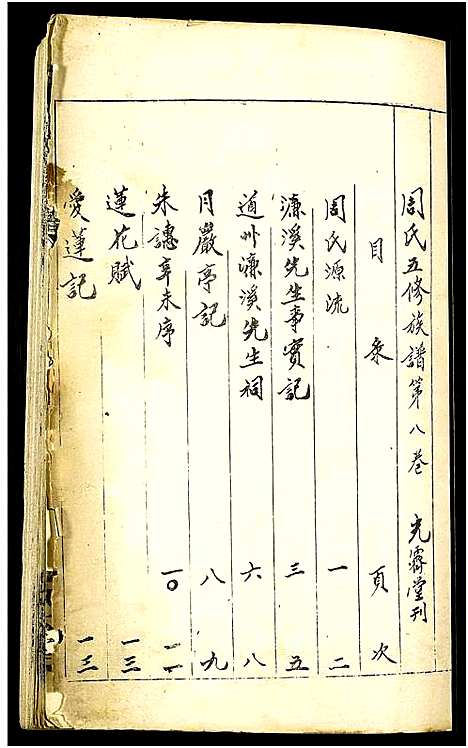 周氏五修族譜第八卷 光霽堂刊
目录 頁次
周氏源流 一 二
濂溪先生事實記 三 五
道州濂溪先生祠 六 八
月嚴亭記 八 九
朱譓辛未序 一〇 一二
蓮花賦 一三
愛蓮記 一三